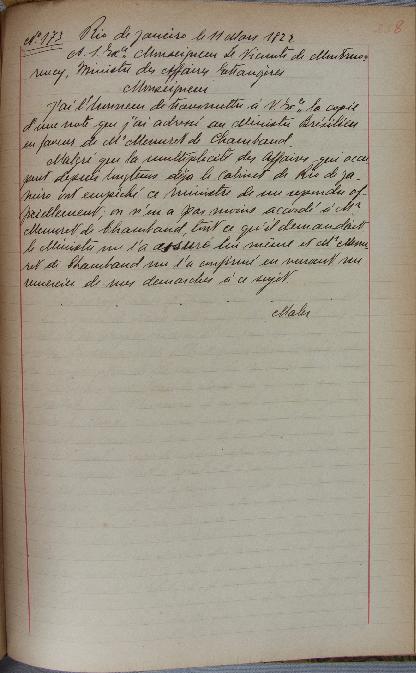 Nº 173 Rio de Janeiro le 11 Mars 1822
A. S. Excc. Monseigneur Le Vicomte de Montmo-
rency, Ministre des Affaires Etrangères
Monseigneur
J'ai l'honneur de transmettre à V. Exc. la copie
d'une note que j'ai adressé au Ministre Brésilien
en faveur de Mr Memuret de Chambaud.
Malgré que la multiplicité des Affaires, qui occu
pent depuis longtems déja le cabinet de Rio de Ja
neiro ont empêché ce ministre de me repondre of-
ficiellement; on n'en a pas moins accordé à Mr
Memuret de Chambaud, tout ce qu'il demandait
le Ministre me l'a assuré lui même et Mr Memu
ret de Chambaud me l'a confirmé en venant me
remercier de mes demarches à ce sujet.
Maler